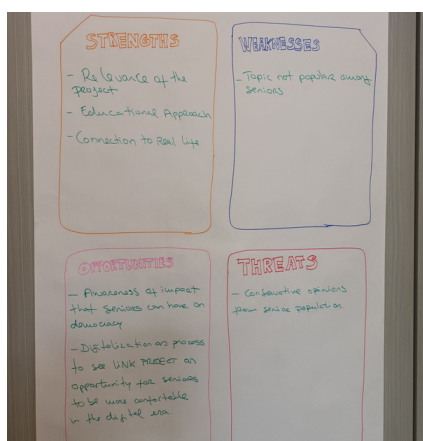 STRENGTHS
- Relevance of the
project
- Educational Approach
- Connection to Real Life
WEAKNESSES
- Topic not popular among
seniors
OPPORTUNITIES
- Awareness of impact
that seniors can have on
democracy
- Digitalization as process
to see LINK PROJECT an
opportunity for seniors
to be more confortable
in the digital era.
THREATS
- Conservative opinions
from senior population